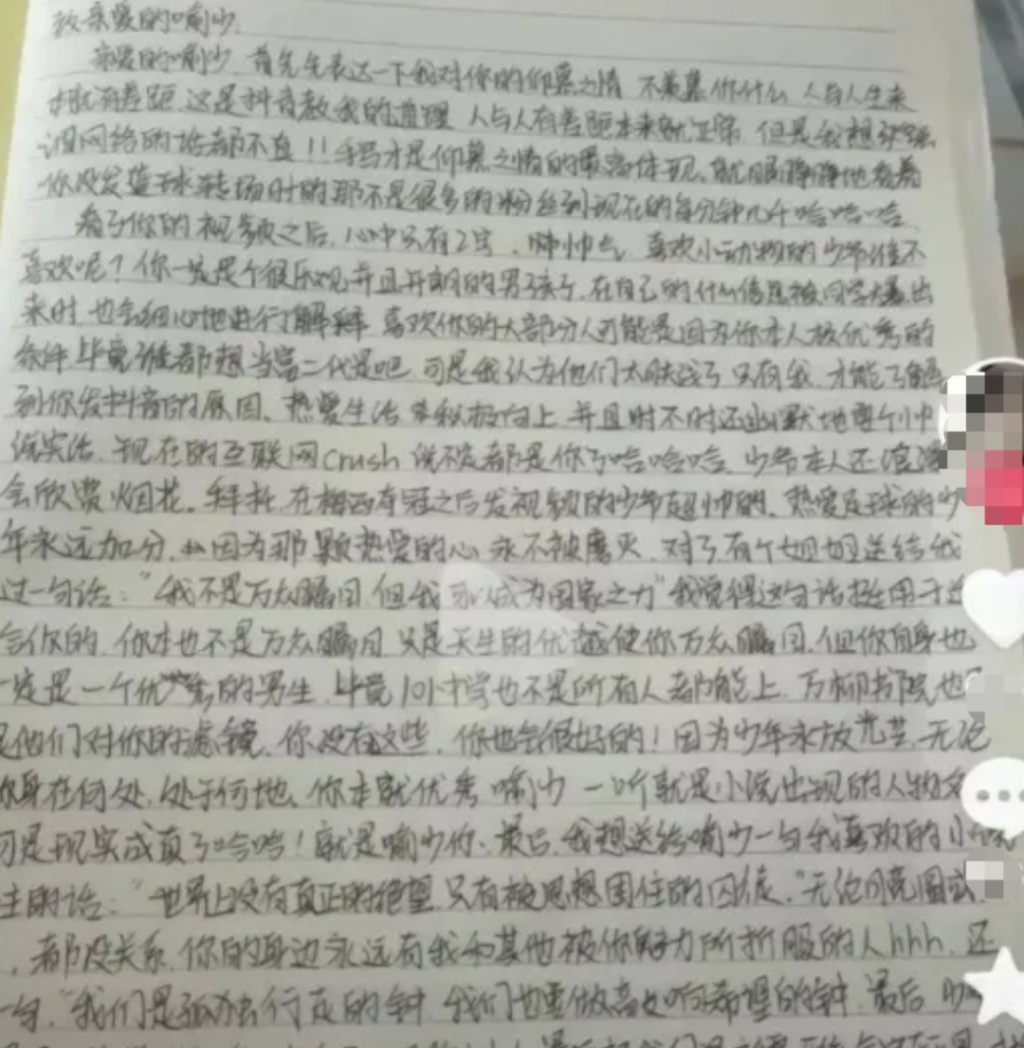 致亲爱的喻少.
亲爱的喻少,首先先表达一下我对你的仰慕之情 不羡慕你什么 人与人生来
就有差距,这是抖音教我的道理 人与人有差距本来就正常 但是我想
网络的话都不直!!手写才是仰慕之情的最高体现、静静地看着
你没发篮球转场时的那不是很多的粉丝到现在的每分钟几千哈哈哈
看了你的视频之后,心中只有2字、帅帅气 喜欢小动物的少爷谁不
喜欢呢?你一定是个很乐观并且开朗的男孩子,在自己的什么信息被同学大暴出
来时,也会细心地进行了解释 喜欢你的大部分人可能是因为你本人极优秀的
条件 毕竟谁都想当富二代是吧 可是我认为他们太肤浅了 只有我,才能了解
到你发抖音的原因、热爱生活 积极向上 并且时不时还幽默地耍个帅
说实话,现在的互联网crush 说不定都是你了哈哈哈 少爷本人还浪漫
会欣赏烟花。拜托,在梅西夺冠之后发视频的少爷超帅的、热爱足球的少
年永远加分,因为那颗热爱的心 永不被磨灭,对了有个姐姐送给我
过一句话:“我不是万众瞩目,但我可以成为国家之力”我觉得这句话挺适用于
你的,你本也不是万众瞩目 只是天生的优越使你万众瞩目,但你自身也
一定是一个优秀的男生,毕竟101中学也不是所有人都能上,万柳书院也
是他们对你的滤镜、你没有这些,你也会很好的!因为少年永放光芒,无论
你身在何处,处于何地、你本就优秀 喻少 一听就是小说出现的人物
可是现实成真了哈哈!就是喻少你、最后,我想送给喻少一句我喜欢的小说
的话:“世界上没有真正的绝望,只有被思想困住的囚徒,”无论
,都没关系,你的身边永远有我和其他被你魅力所折服的人hhh,还
句“我们是孤独行走的钟 我们也要做高处响希望的钟,最后,